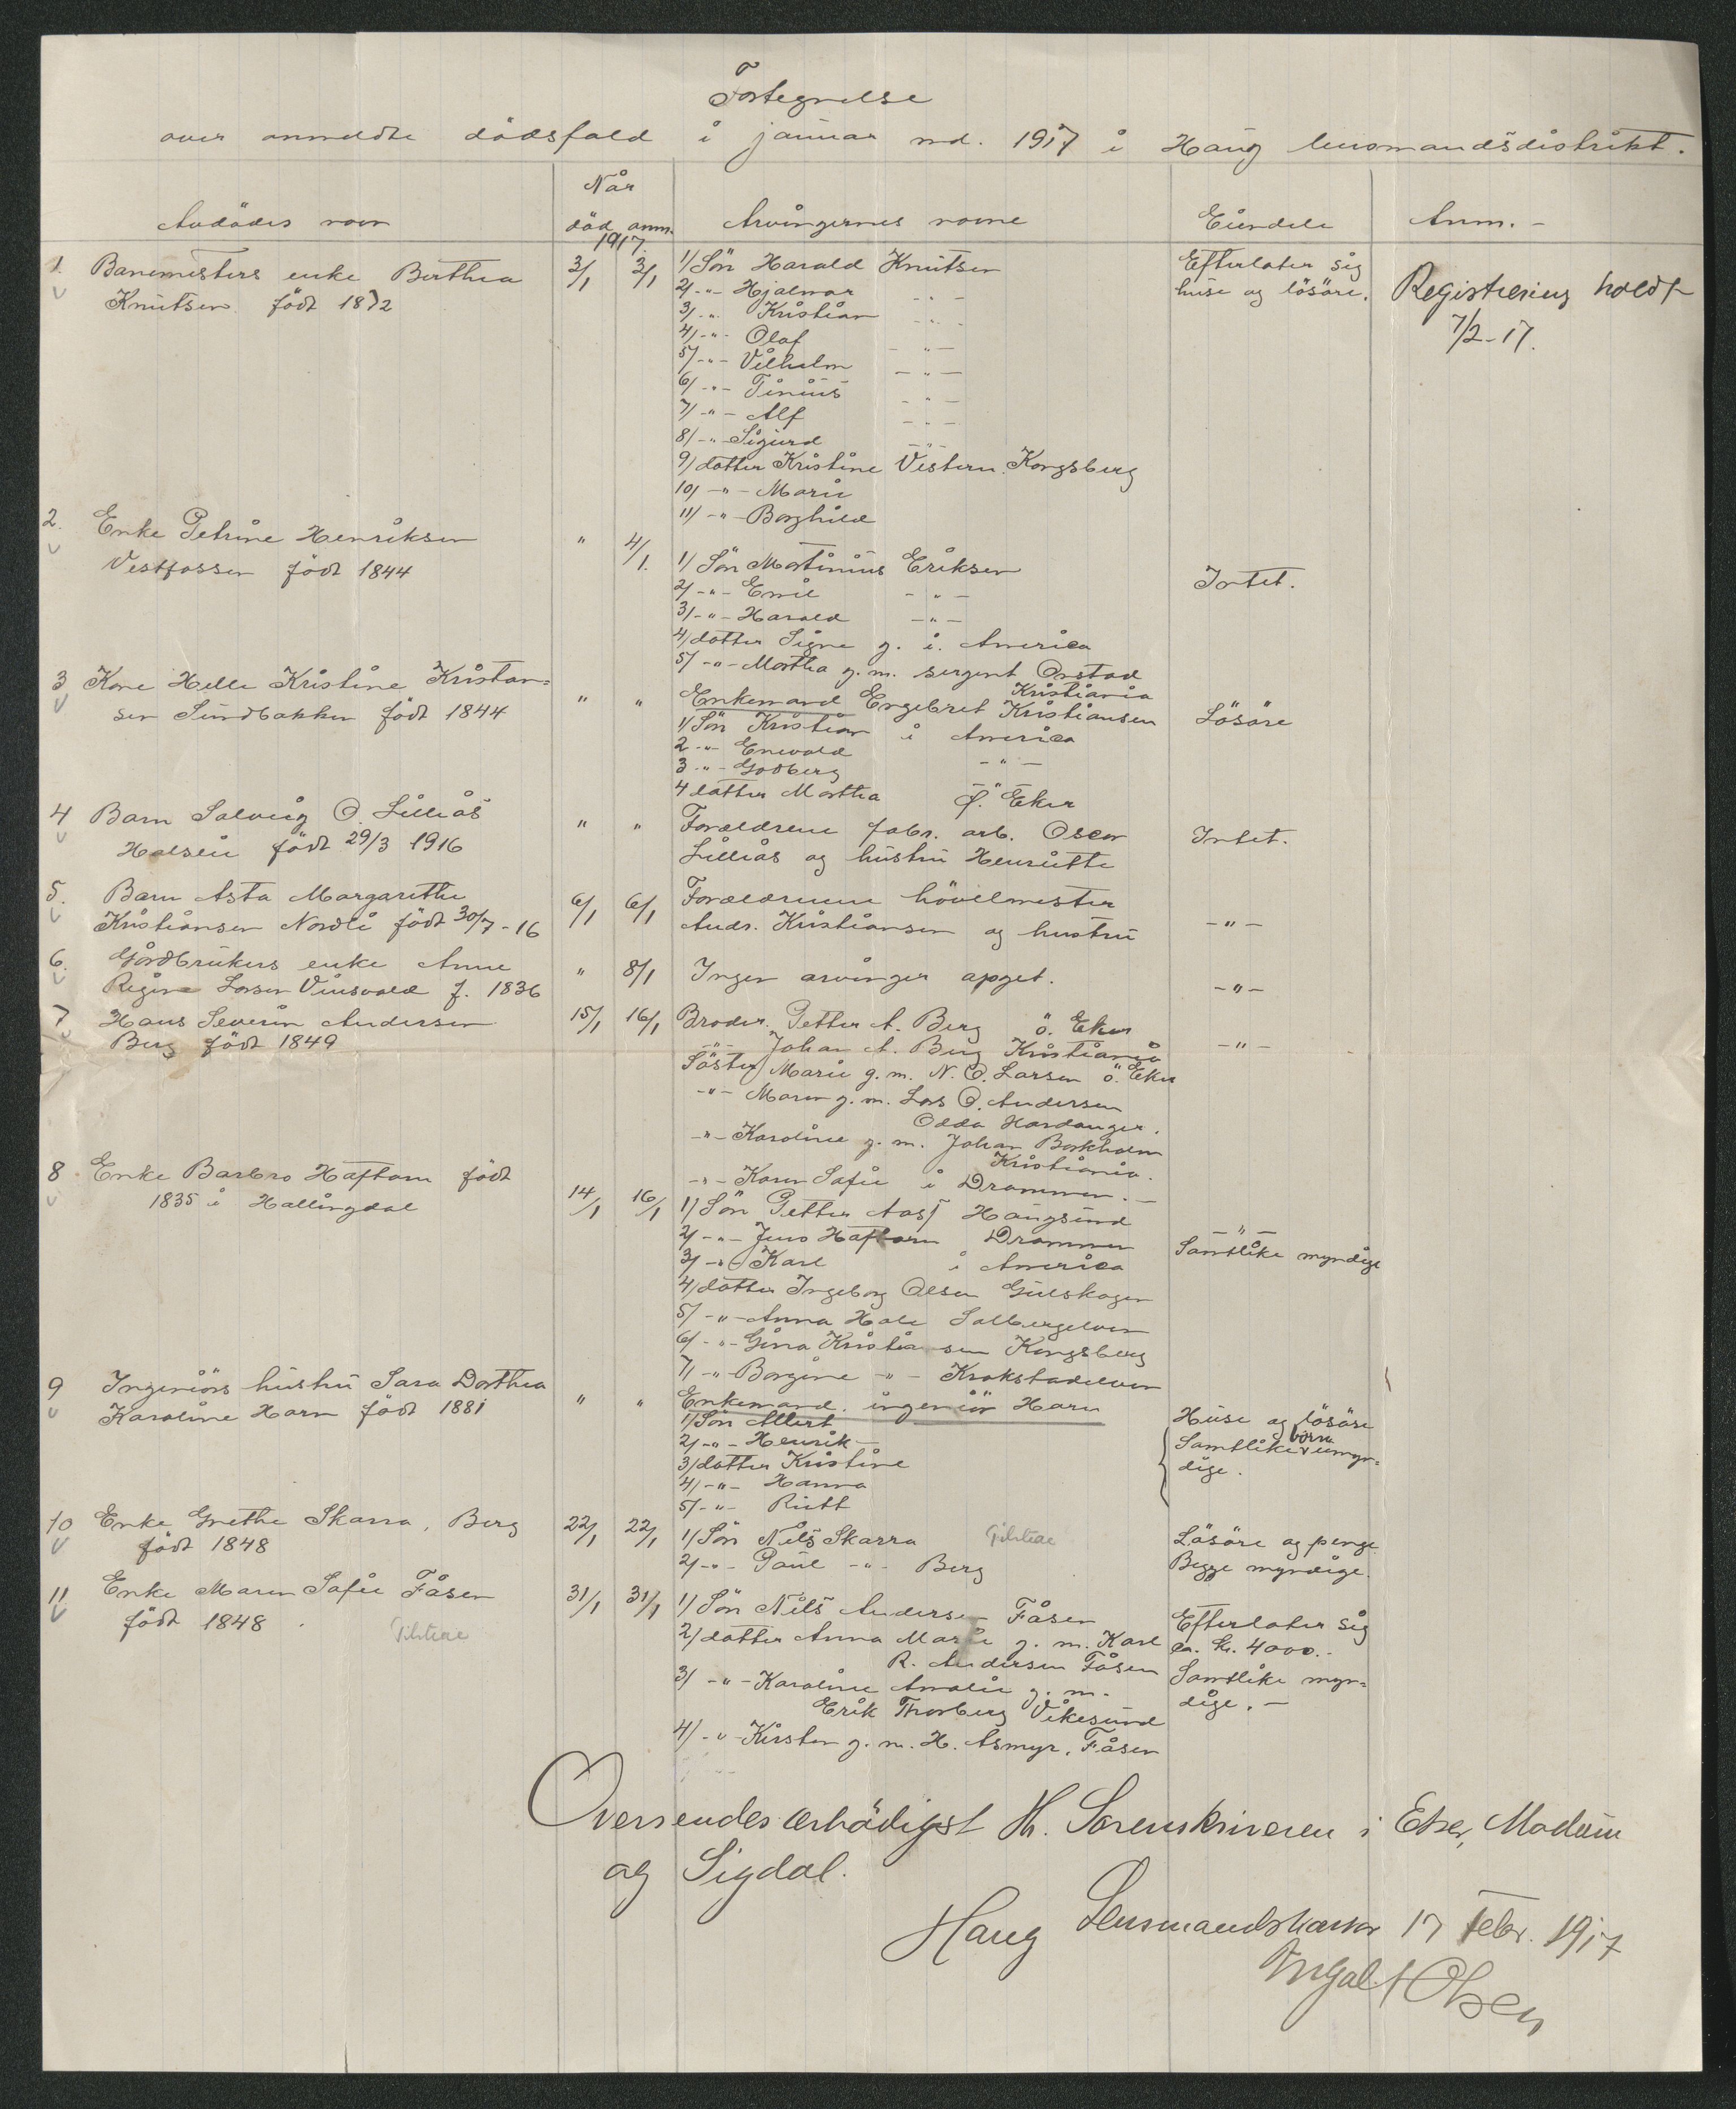 Fortegnelse
over anmeldte dödsfald i januar md. 1917 i Haug lensmandsdistrikt.
Når
Avdödes navn död anm. Arvingernes navne Eiendele Anm. -
1917.
1. Banemesters enke Berthea 3/1 3/1 1/ Sön Harald Knutsen Efterlater sig
Knutsen födt 1872 2/ -"- Hjalmar -"- huse og lösöre. Registrering holdt
3/ -"- Kristian -"- 7/2-17.
4/ -"- Olaf -"-
5/ -"- Vilhelm -"-
6/ -"- Tinius -"-
7/ -"- Alf -"-
8/ -"- Sigurd -"-
9/ datter Kristine Vestern Kongsberg
10/ -"- Marie
11/ -"- Borghild
2. Enke Petrine Henriksen " 4/1.
Vestfossen födt 1844 1/ Sön Martinius Eriksen Intet.
2/ -"- Emil -"-
3/ -"- Harald -"-
4/ datter Signe g. i. America
5/ -"- Martha g. m. sergent Onstad
Kristiania
3 Kone Helle Kristine Kristian= " " Enkemand Engebret Kristiansen Lösöre
sen Sundbakken födt 1844 1/ Sön Kristian i America
2 -"- Enevald -"-
3 -"- Godberg -"-
4 datter Martha Ö. Eker
4 Barn Solveig O. Lilliås " " Forældrene fabr. arb. Oscar Intet.
Halsen födt 29/3 1916 Lilliås og hustru Henriette
5. Barn Asta Margarethe 6/1 6/1 Forældrene hövelmester
Kristiansen Nordli födt 30/7-16 Andr. Kristiansen og hustru -"-
6. Gårdbrukers enke Anne " 8/1 Ingen arvinger opget. -"-
Regine Larsen Vinsvold f. 1836
7 Hans Severin Andersen 15/1 16/1 Broder Petter A. Berg Ö. Eker
Berg födt 1849 -"- Johan A. Berg Kristiania -"-
Söster Marie g. m. N. O. Larsen Ö. Eker
-"- Maren g. m. Lars O. Andersen
Odda Hardanger.
-"- Karoline g. m. Johan Borkholm
Kristiania.
-"- Karen Sofie i Drammen. -
8 Enke Barbro Haftorn födt 14/1 16/1 1/ Sön Petter Aas Haugsund
1835 i Hallingdal 2/ -"- Jens Haftorn Drammen -"-
3/ -"- Karl i America Samtlike myndige
4/ datter Ingeborg Olsen Gulskogen
5/ -"- Anna Hole Solbergelven
6/ -"- Gina Kristiansen Kongsberg
7/ -"- Borgine -"- Krokstadelven
9 Ingeniörs hustru Sara Dorthea " " Enkemand. ingeniör Horn Huse og lösöre
Karoline Horn födt 1881 1/ Sön Albert Samtlike börn umyn=
2/ -"- Henrik dige.
3/ datter Kristine
4/ -"- Hanna
5/ -"- Rutt
10 Enke Grethe Skarra, Berg 22/1 22/1 1/ Sön Nils Skarra Lösöre og penge
födt 1848 2/ -"- Paul -"- Berg Begge myndige.
11 Enke Maren Sofie Fåsen 31/1 31/1 1/ Sön Nils Andersen Fåsen Efterlater sig
födt 1848. 2/ datter Anna Marie g. m. Karl ca. kr. 4000.-
R. Andersen Fåsen Samtlike myn=
3/ -"- Karoline Amalie g. m. dige. -
Erik Thorberg Vikesund
4/ -"- Kirsten g. m. H. Asmyr, Fåsen
Oversendes ærbödigst Hr. Sorenskriveren i Eker, Modum
og Sigdal.
Haug Lensmandskontor 17 Febr. 1917
Ingolf Olsen